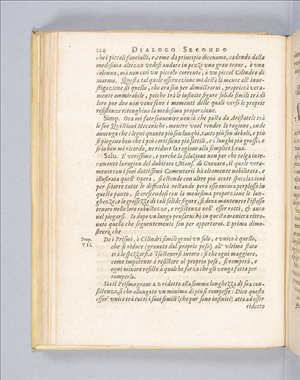 124 DIALOGO SECONDO
che i piccoli fanciulli, e come da principio dicevamo, cadendo dalla
medesima altezza vedesi andare in pezzi una gran trave, ò una
colonna, mà non così un piccolo corrente, ò un piccol Cilindro di
marmo. Questa tal quale osservazione mi destò la mente all' inve-
stigazione di quello, che ora son per dimostrarvi, proprietà vera-
mente ammirabile, poiche trà le infinite figure solide simili trà di
loro pur due non vene sono i momenti delle quali verso le proprie
resistenze ritenghino la medesima proporzione.
Simp. Ora mi fate sovvenire non sò che posto da Aristotele trà le
sue Quistioni Mecaniche, mentre vuol render la ragione, onde
avvenga che i legni quanto più son lunghi, tanto più son deboli, e più
si piegano ben che i più corti sieno più sottili, e i lunghi più grossi; e
se io ben mi ricordo, ne riduce la ragione alla semplice Leva.
Salv. È verissimo, e perche la soluzione non par che tolga inte-
ramente la ragion del dubitare, Mons. di Guevara, il quale vera-
mente con i suoi dottissimi Comentarii hà altamente nobilitata, e
illustrata quell' Opera, si estende con altre più acute specolazioni
per sciorre tutte le difficoltà restando però esso ancora perplesso in
questo punto, se crescendosi con la medesima proporzione le lun-
ghezze, e le grossezze di tali solide figure, si deva mantenere l'istesso
tenore nelle loro robustezze, e resistenze nell' esser rotti, & anco
nel piegarsi. Io dopo un lungo pensarvi hò in questa maniera ritro-
vato quello che seguentemente son per apportarvi. E prima dimo-
strerò, che
Prop. VII. De i Prismi, ò Cilindri simili gravi un solo, e unico è quello,
che si riduce (gravato dal proprio peso) all' ultimo stato
trà lo spezzarsi, e 'l sostenersi intero: sì che ogni maggiore,
come impotente à resistere al proprio peso, si romperà, e
ogni minore resiste à qualche forza che gli venga fatta per
romperlo.
Sia il Prisma grave A B ridotto alla somma lunghezza di sua con-
sistenza, sì che allungato un minimo di più si rompesse: Dico questo
esser' unico trà tutti i suoi simili (che pur sono infiniti) atto ad esser
ridotto